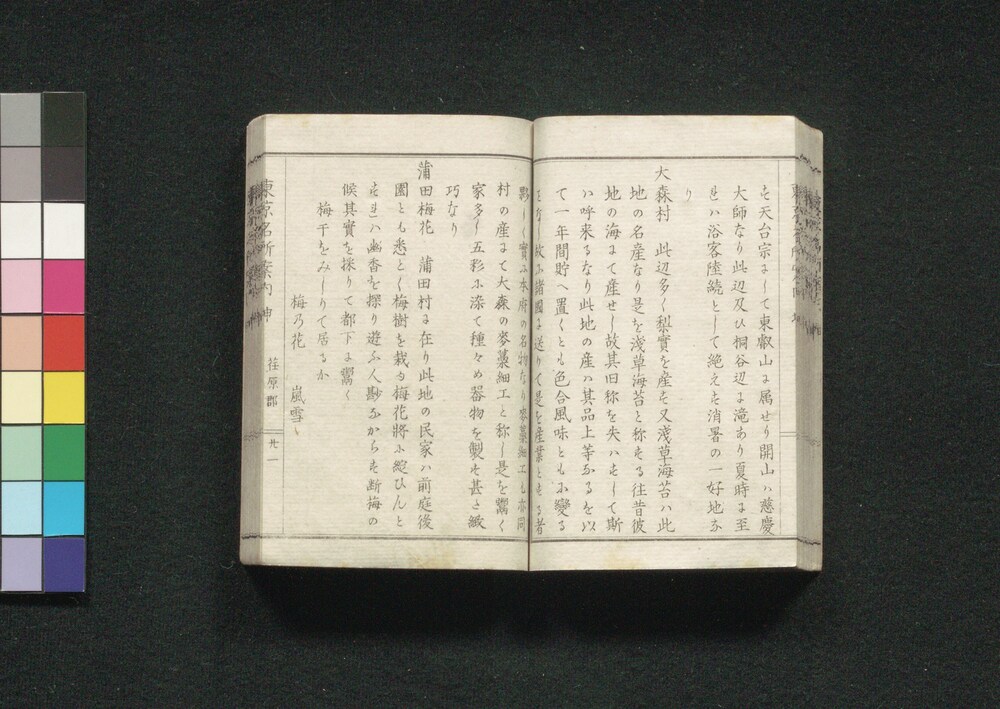 も天台宗にして東叡山に属せり開山ハ慈慶
大師なり此辺及ひ桐谷辺に滝あり夏時に至
れハ浴客陸続として絶えも消暑の一好地な
り
大森村　此辺多く梨實を産も又浅草海苔ハ此
地の名産なり是を浅草海苔と称もる往昔彼
地の海にて産せし故其旧称を失ハもして斯
ハ呼来るなり此地の産ハ其品上等なるを以
て一年間貯へ置くとも色合風味ともに変る
となし故に諸國に送りて是を産業ともる者
夥しく實に本府の名物なり麥藁細工も亦同
村の産にて大森の麥藁細工と称し是を鬻く
家多し五彩に染て種々の器物を製も甚た緻
巧なり
蒲田梅花　蒲田村に在り此地の民家ハ前庭後
園とも悉とく梅樹を栽ゆ梅花將に綻ひんと
もれハ幽香を探り遊ふ人尠なからも断梅の
候其實を採りて都下に鬻く
梅干をみしりて居るか
梅乃花　嵐雪
東京名所案内
荏原郡
廿一